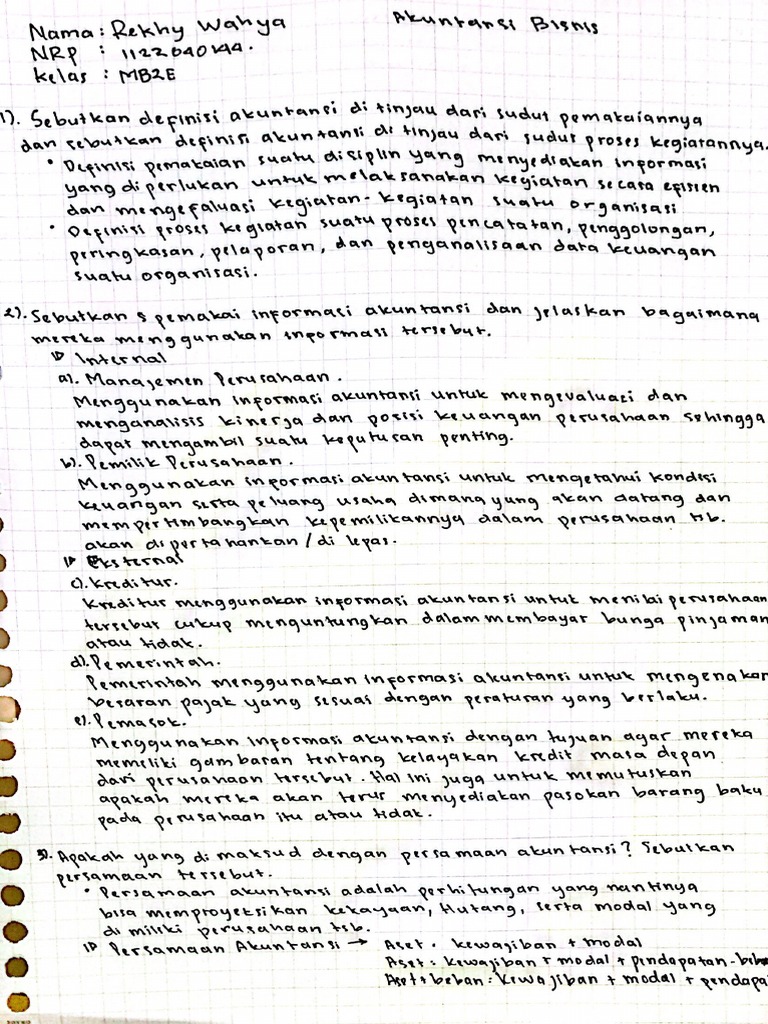 Nama : Rekhy Wahya Akuntansi Bisnis
NRP : 1122040144.
kelas : MB2E
1). Sebutkan definisi akuntansi di tinjau dari sudut pemakaiannya
dan sebutkan definisi akuntansi di tinjau dari sudut proses kegiatannya.
• Definisi pemakaian suatu disiplin yang menyediakan informasi
yang diperlukan untuk melaksanakan kegiatan secara efisien
dan mengefaluasi kegiatan-kegiatan suatu organisasi
• Definisi proses kegiatan suatu proses pencatatan, penggolongan,
peringkasan, pelaporan, dan penganalisaan data keuangan
suatu organisasi.
2). Sebutkan 5 pemakai informasi akuntansi dan jelaskan bagaimana
mereka menggunakan informasi tersebut.
Internal
a). Manajemen Perusahaan.
Menggunakan informasi akuntansi untuk mengevaluasi dan
menganalisis kinerja dan posisi keuangan perusahaan sehingga
dapat mengambil suatu keputusan penting.
b). Pemilik Perusahaan.
Menggunakan informasi akuntansi untuk mengetahui kondisi
keuangan serta peluang usaha dimana yang akan datang dan
mempertimbangkan kepemilikannya dalam perusahaan tsb.
akan dipertahankan / di lepas.
Eksternal
c). Kreditur.
Kreditur menggunakan informasi akuntansi untuk menilai perusahaan
tersebut cukup menguntungkan dalam membayar bunga pinjaman
atau tidak.
d). Pemerintah.
Pemerintah menggunakan informasi akuntansi untuk mengenakan
besaran pajak yang sesuai dengan peraturan yang berlaku.
e). Pemasok.
Menggunakan informasi akuntansi dengan tujuan agar mereka
memiliki gambaran tentang kelayakan kredit masa depan
dari perusahaan tersebut. Hal ini juga untuk memutuskan
apakah mereka akan terus menyediakan pasokan barang baku
pada perusahaan itu atau tidak.
3). Apakah yang di maksud dengan persamaan akuntansi? Sebutkan
persamaan tersebut.
• Persamaan akuntansi adalah perhitungan yang nantinya
bisa memproyeksikan kekayaan, Hutang, serta modal yang
di miliki perusahaan tsb.
Persamaan Akuntansi → Aset . kewajiban + modal
Aset : kewajiban + modal + pendapatan - beban
Aset + beban : kewajiban + modal + pendapa